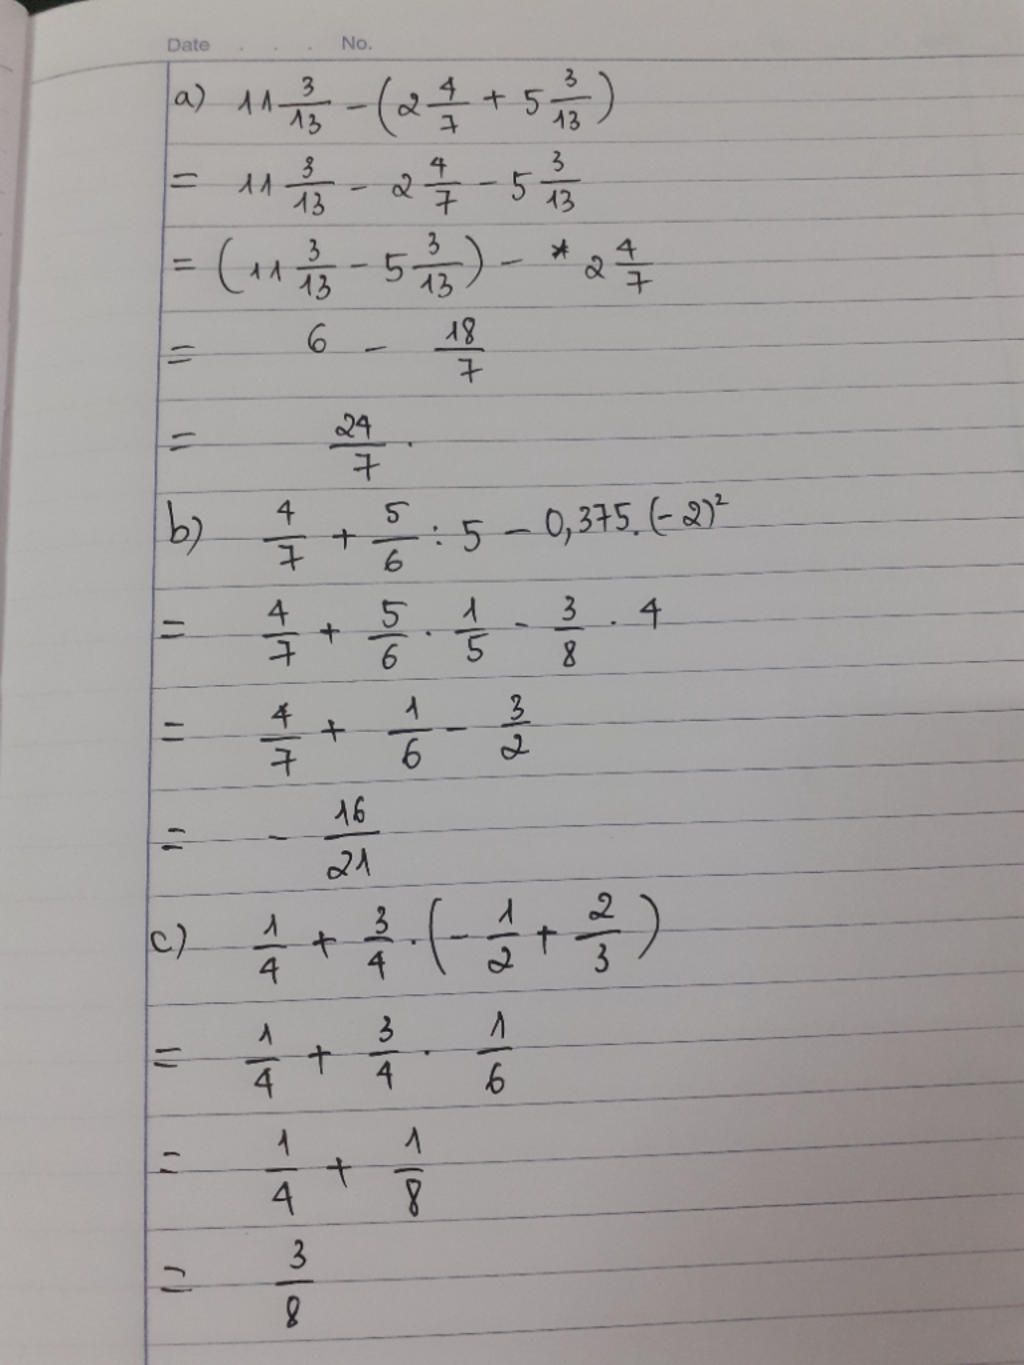 Date . . . No.
a) 11 3/13 - (2 4/7 + 5 3/13)
= 11 3/13 - 2 4/7 - 5 3/13
= (11 3/13 - 5 3/13) - * 2 4/7
= 6 - 18/7
= 24/7 .
b) 4/7 + 5/6 : 5 - 0,375.(-2)²
= 4/7 + 5/6 . 1/5 - 3/8 . 4
= 4/7 + 1/6 - 3/2
= - 16/21
c) 1/4 + 3/4 . (- 1/2 + 2/3)
= 1/4 + 3/4 . 1/6
= 1/4 + 1/8
= 3/8